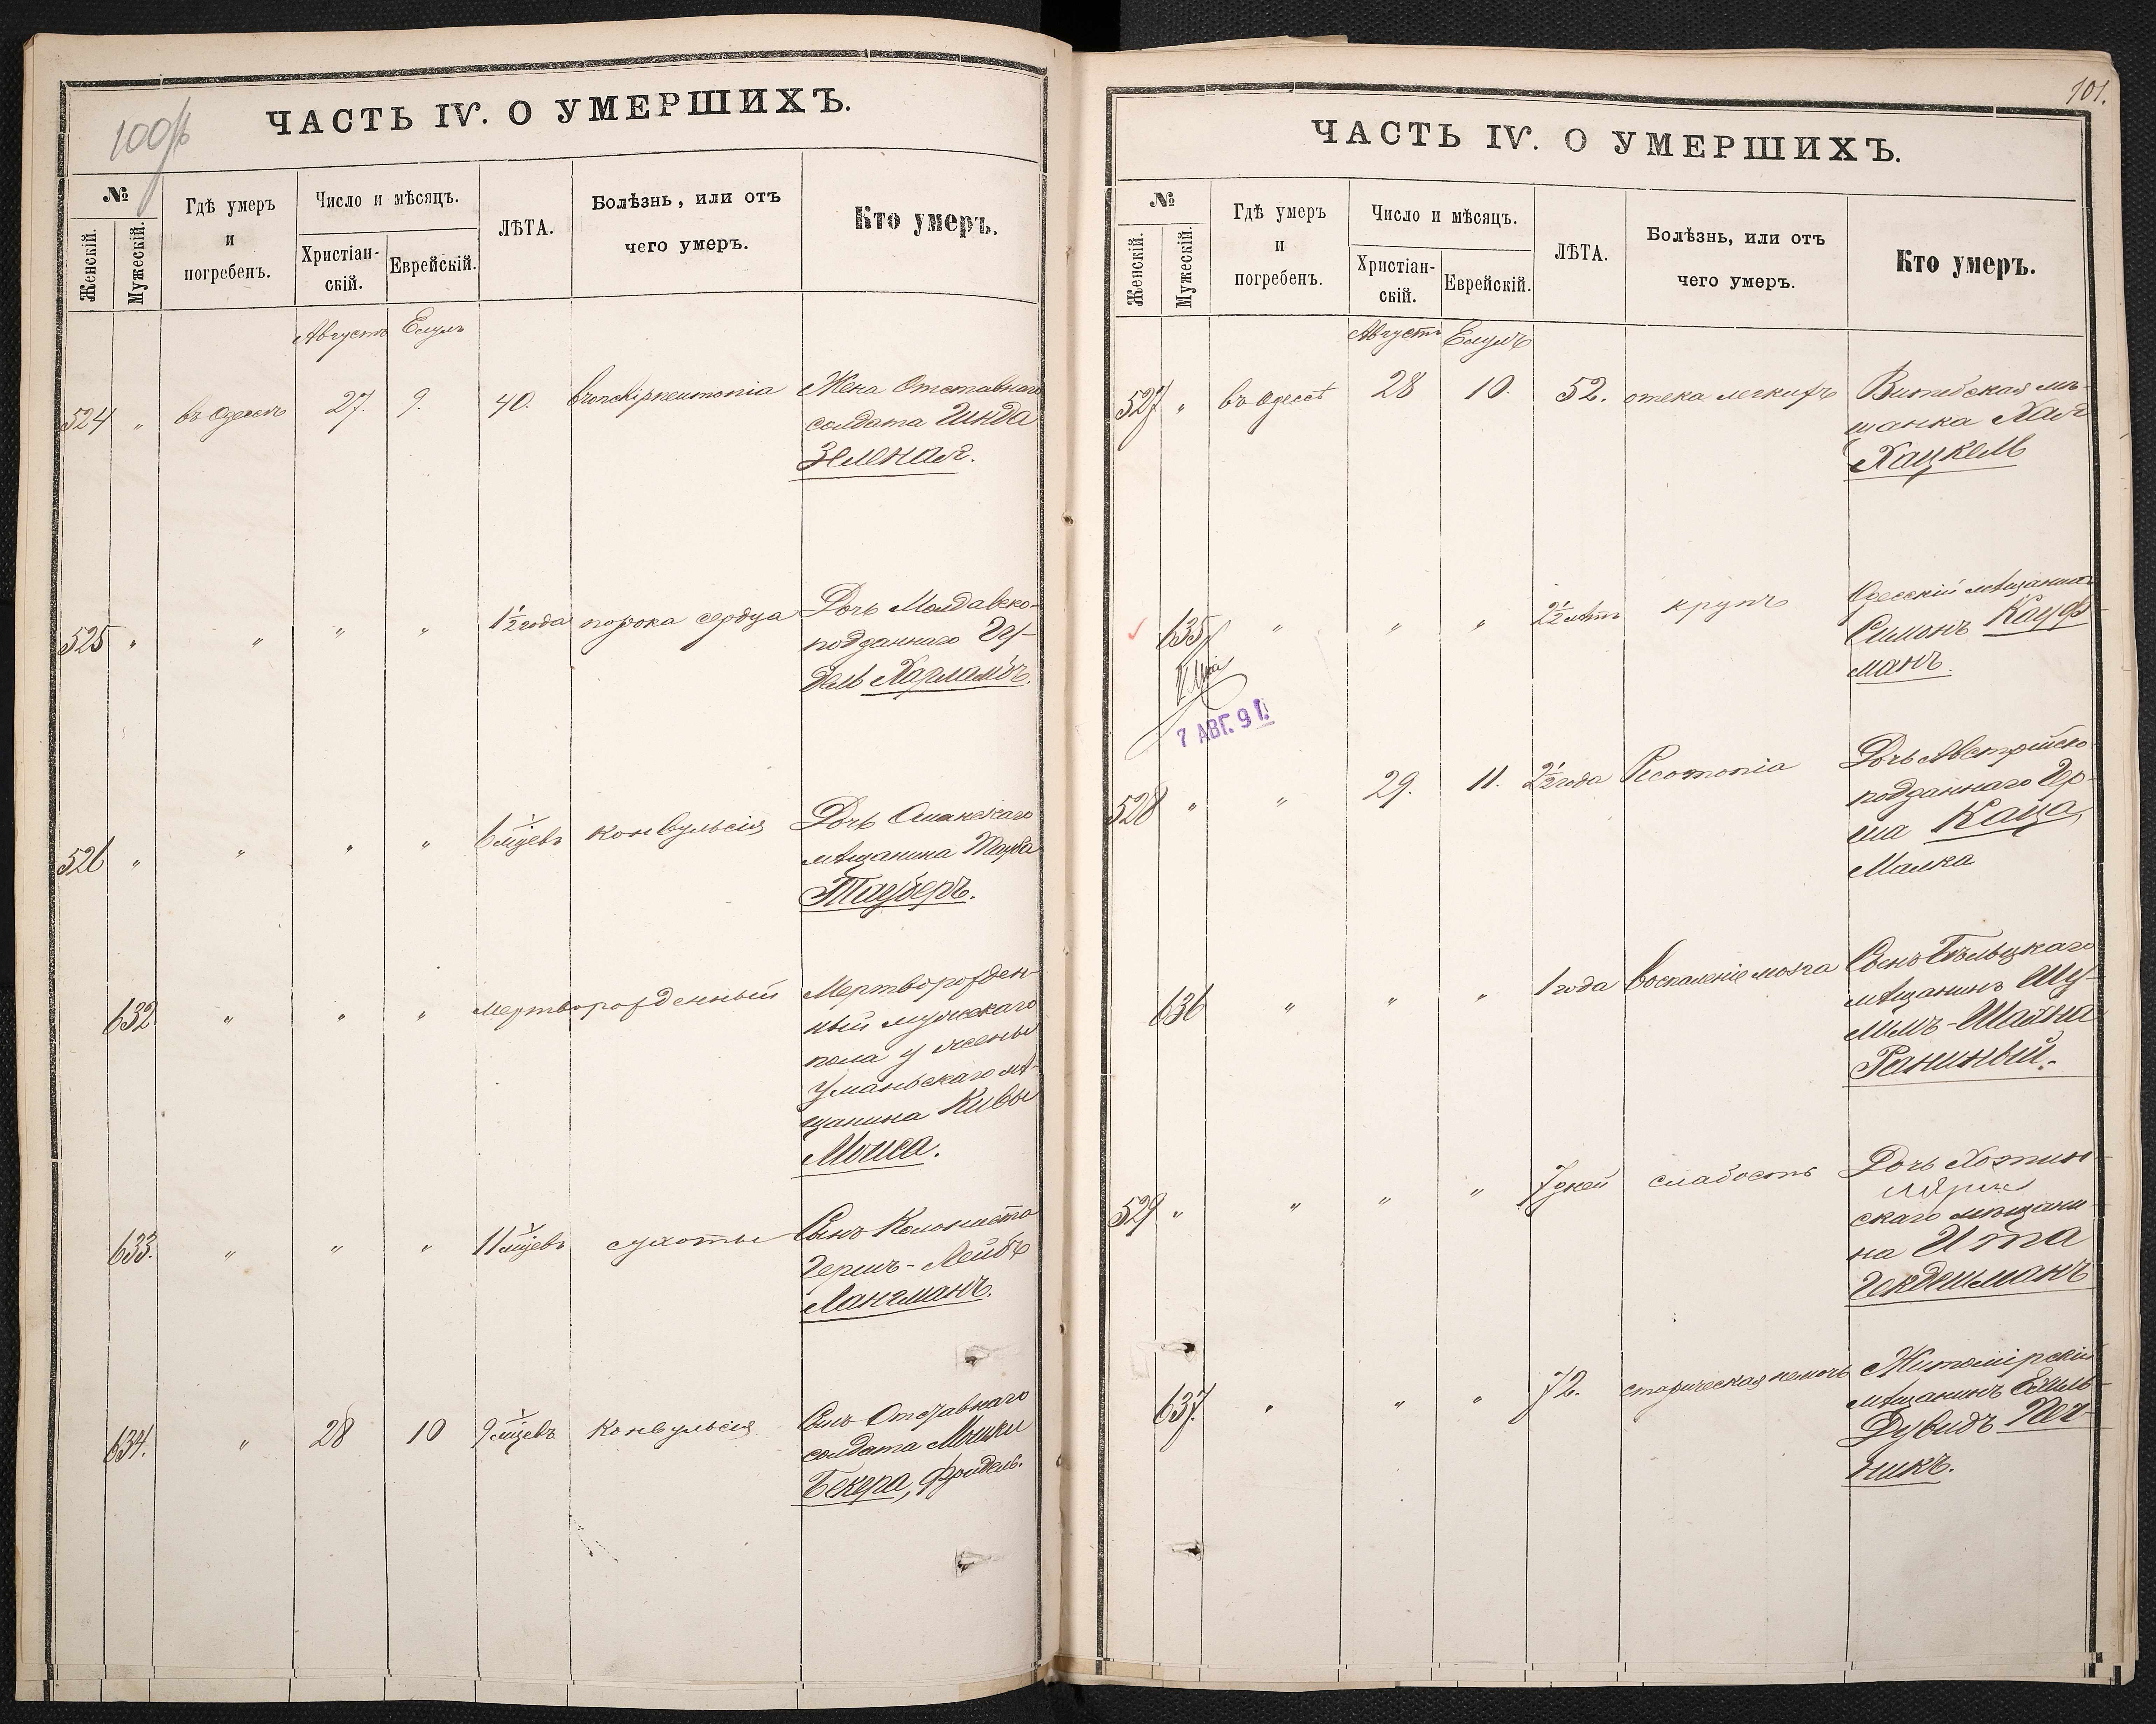 ЧАСТЬ IV. О УМЕРШИХЪ.
№
Женскій.
Мужескій.
Гдѣ умеръ
и
погребенъ.
Число и мѣсяцъ.
Христіан-
скій.
Еврейскій.
ЛѢТА.
Болѣзнь, или отъ
чего умеръ.
Кто умеръ.
Августъ Елулъ
524 " въ Одессѣ 27. 9. 40. bronchipneumonia Жена Отставнаго
солдата Гинда
Зеленая.
525 " " " " 1½ года порока сердца Дочь Молдавско-
подданнаго
Харламбъ.
526 " " " " 6 мцевъ конвульсія Дочь Ананскаго
мѣщанина Тауба
Тауберъ.
632 " " " мертворожденный Мертворожден-
ный мужескаго
пола у жены
Уманьскаго мѣ-
щанина Кивы
Моиса.
633. " " " 11 мцевъ сухоты Сынъ Колониста
Гершъ-Лейбъ
Лангманъ.
634. " 28 10 9 мцевъ конвульсія Сынъ Отставнаго
солдата Мошки
Бекера, Фридель.
101.
ЧАСТЬ IV. О УМЕРШИХЪ.
№
Женскій.
Мужескій.
Гдѣ умеръ
и
погребенъ.
Число и мѣсяцъ.
Христіан-
скій.
Еврейскій.
ЛѢТА.
Болѣзнь, или отъ
чего умеръ.
Кто умеръ.
Августъ Елулъ
527 " въ Одессѣ 28 10. 52. отека легкихъ Витебская мѣ-
щанка Хая
Хацкель
635 " " " 2½ лѣтъ крупъ Одесскій мѣщанинъ
Симонъ Кауф-
манъ.
7 АВГ. 91
528 " " 29. 11. 2½ года Дочь Австрійско
подданнаго Гер-
ша Каца,
Малка
636 " " " 1 года воспаленіе мозга Сынъ Бѣльцкаго
мѣщанинъ Шу-
лимъ-Шайна
529 " " " " 7 дней слабость Дочь Хотин-
скаго мѣщани-
на Ита
Гекдешманъ
637. " " " 72. старческая немочь Житомірскій
мѣщанинъ Ехиль-
Дувидъ Печ-
никъ.